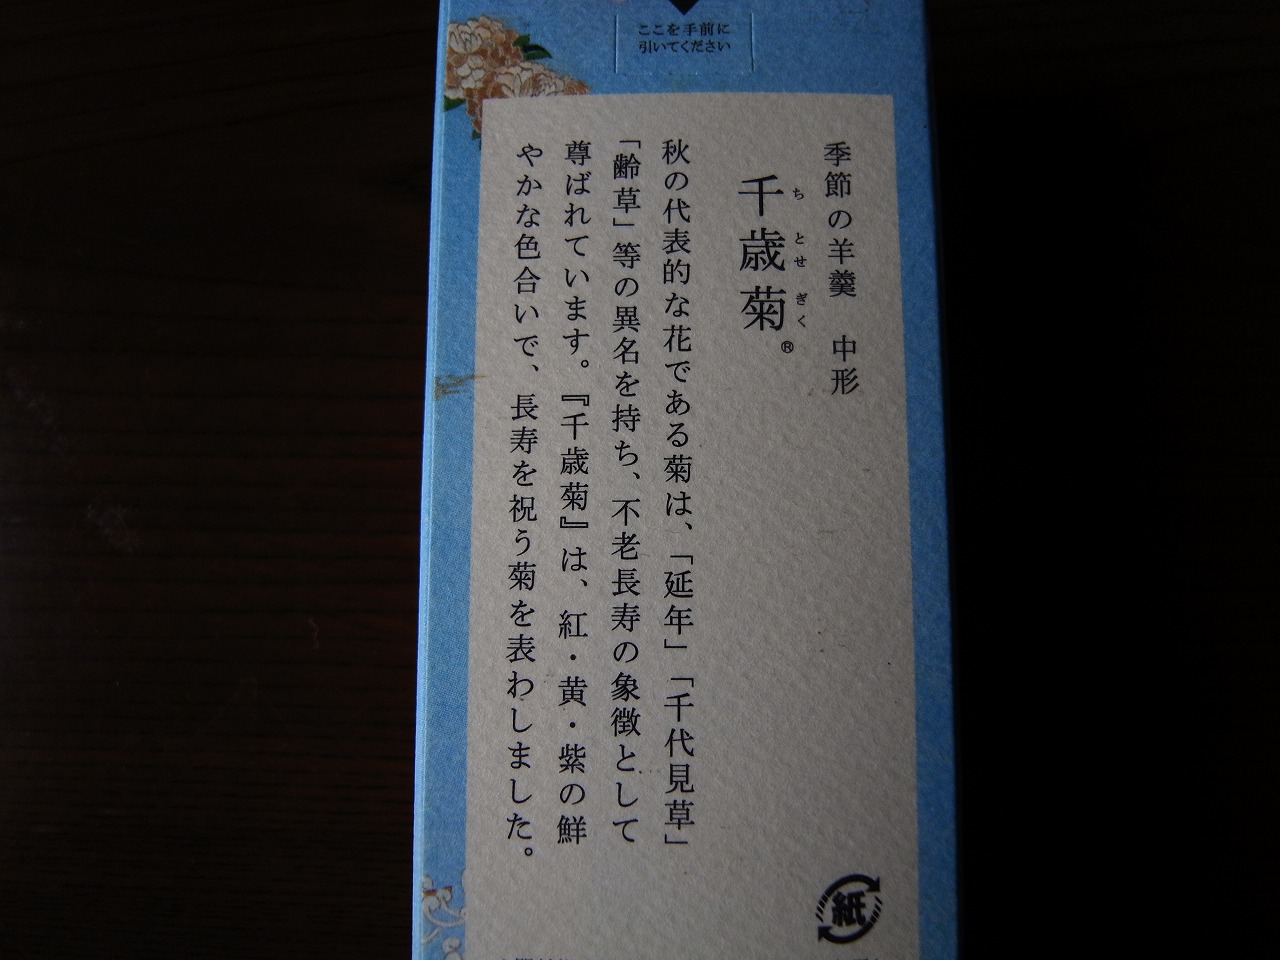 ここを手前に
引いてください
季節の羊羹　中形
千歳菊®
ちとせぎく
秋の代表的な花である菊は、「延年」「千代見草」
「齢草」等の異名を持ち、不老長寿の象徴として
尊ばれています。『千歳菊』は、紅・黄・紫の鮮
やかな色合いで、長寿を祝う菊を表わしました。
紙